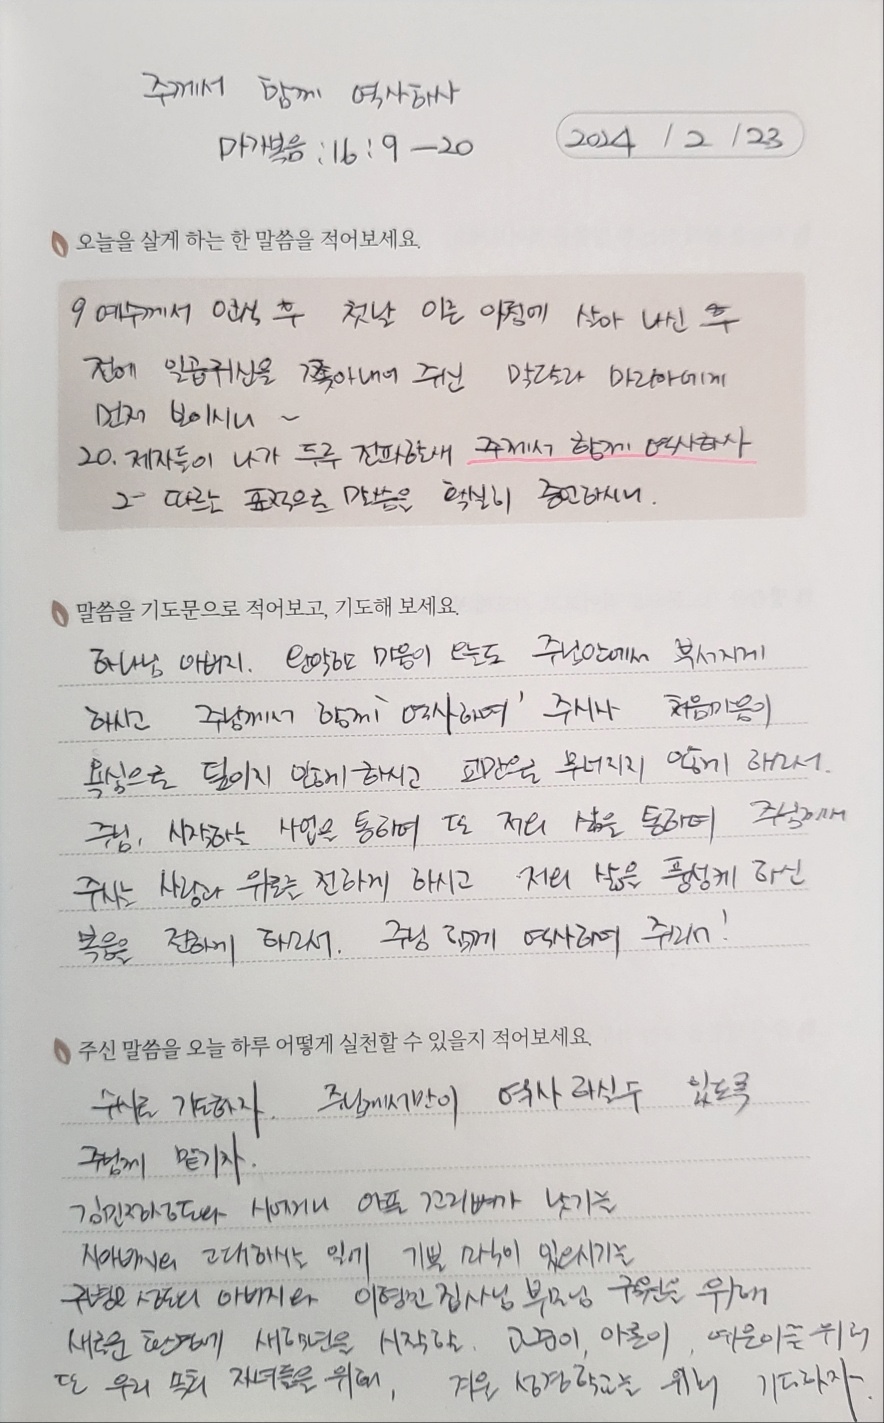 주께서 함께 역사하사
마가복음 : 16 : 9 - 20
2024 / 2 / 23
오늘을 살게 하는 한 말씀을 적어보세요.
9 예수께서 안식 후 첫날 이른 아침에 살아 나신 후
전에 일곱귀신을 쫓아내어 주신 막달라 마리아에게
먼저 보이시니 ~
20. 제자들이 나가 두루 전파할새 주께서 함께 역사하사
그 따르는 표적으로 말씀을 확실히 증언하시니.
말씀을 기도문으로 적어보고, 기도해 보세요.
하나님 아버지. 완악한 마음이 오늘도 주님안에서 부서지게
하시고 주님께서 함께 '역사하여' 주시사 처음마음이
욕심으로 덮이지 않게 하시고 교만으로 무너지지 않게 하소서.
주님, 시작하는 사업을 통하여 또 저의 삶을 통하여 주님께서
주시는 사랑과 위로를 전하게 하시고 저의 삶을 풍성케 하신
복음을 전하게 하소서. 주님 함께 역사하여 주소서!
주신 말씀을 오늘 하루 어떻게 실천할 수 있을지 적어보세요.
수시로 기도하자. 주님께서만이 역사 하실수 있도록
주님께 맡기자.
시어머니 아픈 꼬리뼈가 낫기를
고대하시는 일에 기쁜 소식이 있으시기를
성도의 아버지와 집사님 부모님 구원을 위해
새로운 환경에 새학년을 시작할 아론이, 위해
또 우리 자녀들을 위해, 겨울 성경학교를 위해 기도하자.